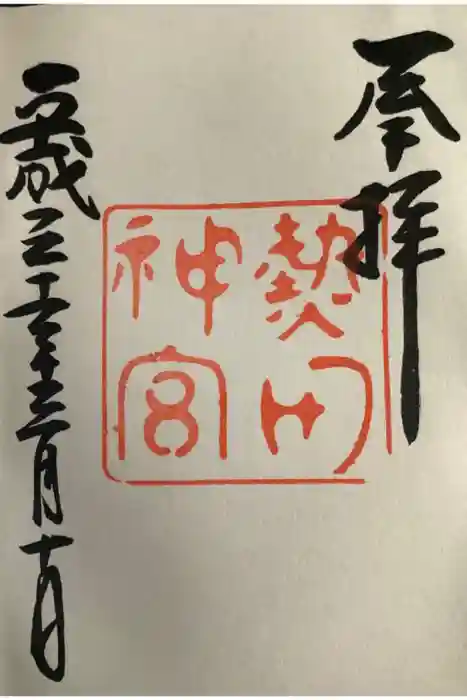 奉拝
熱田
神宮
平成三十年十二月十日